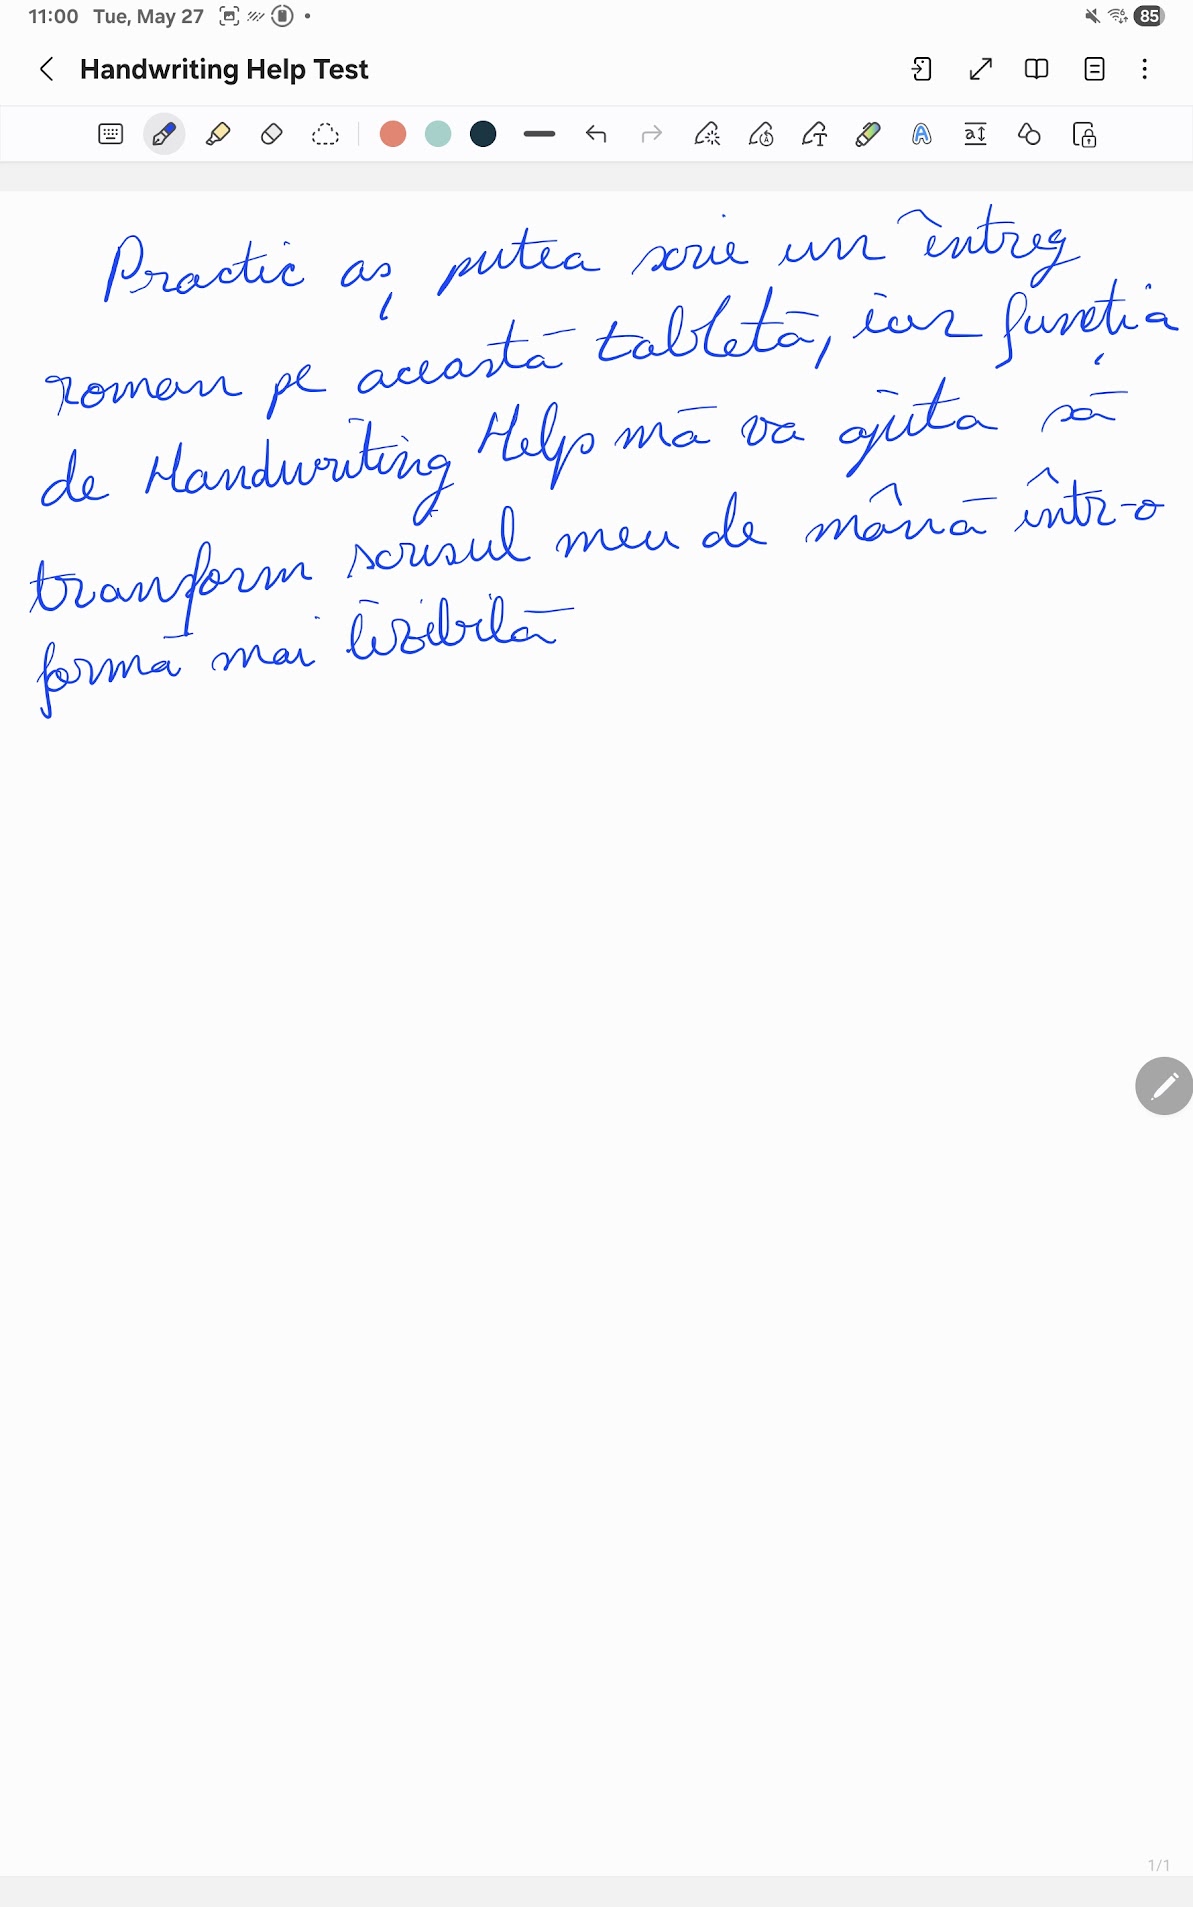 11:00 Tue, May 27
85
Handwriting Help Test
Practic aș putea scrie un întreg
roman pe această tabletă, iar funcția
de Handwriting Help mă va ajuta să
transform scrisul meu de mână într-o
formă mai lizibilă
1/1